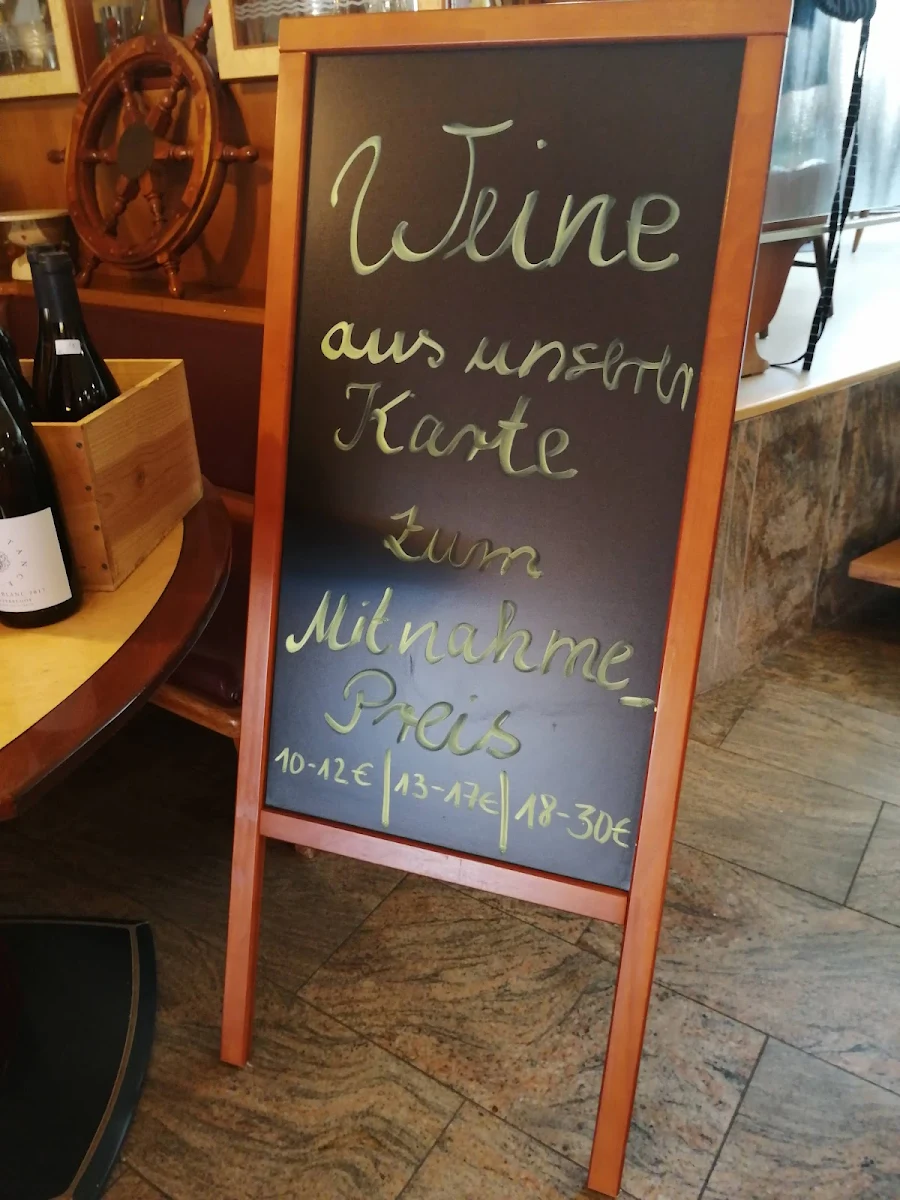 Weine
aus unserer
Karte
zum
Mitnahme-
Preis
10-12€ | 13-17€ | 18-30€
BLANC 2017